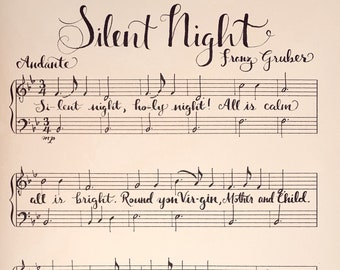 Silent Night
Andante Franz Gruber
3 4 Si-lent night, ho-ly night! All is calm
3 4
mp
all is bright. Round yon Vir-gin, Mother and Child.